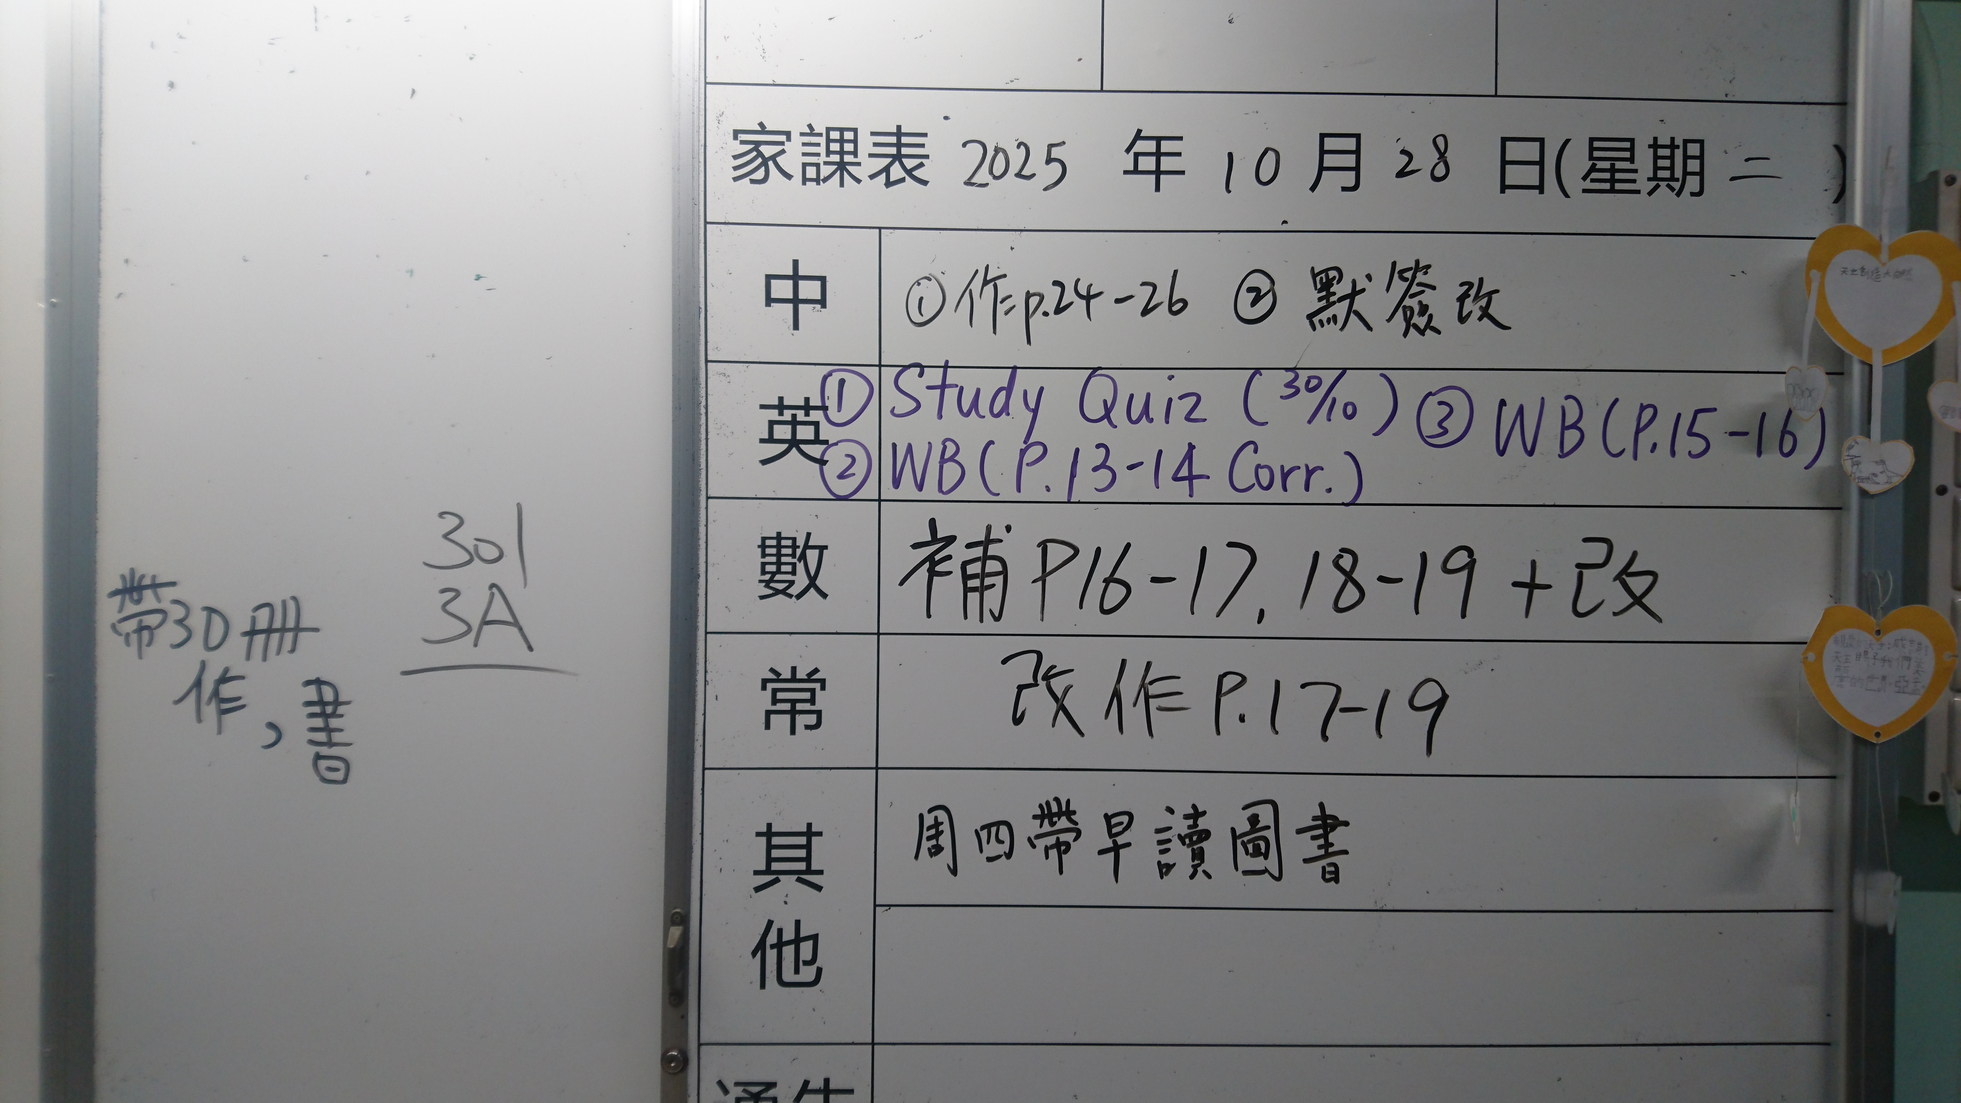 家課表 2025 年 10 月 28 日(星期 二 )
中 ①作p.24-26 ② 默簽改
英 ① Study Quiz (30/10) ③ WB(P.15-16)
② WB(P.13-14 Corr.)
數 補P16-17, 18-19 + 改
常 改作P.17-19
其他 周四帶早讀圖書
301
3A
帶3D冊
作,書